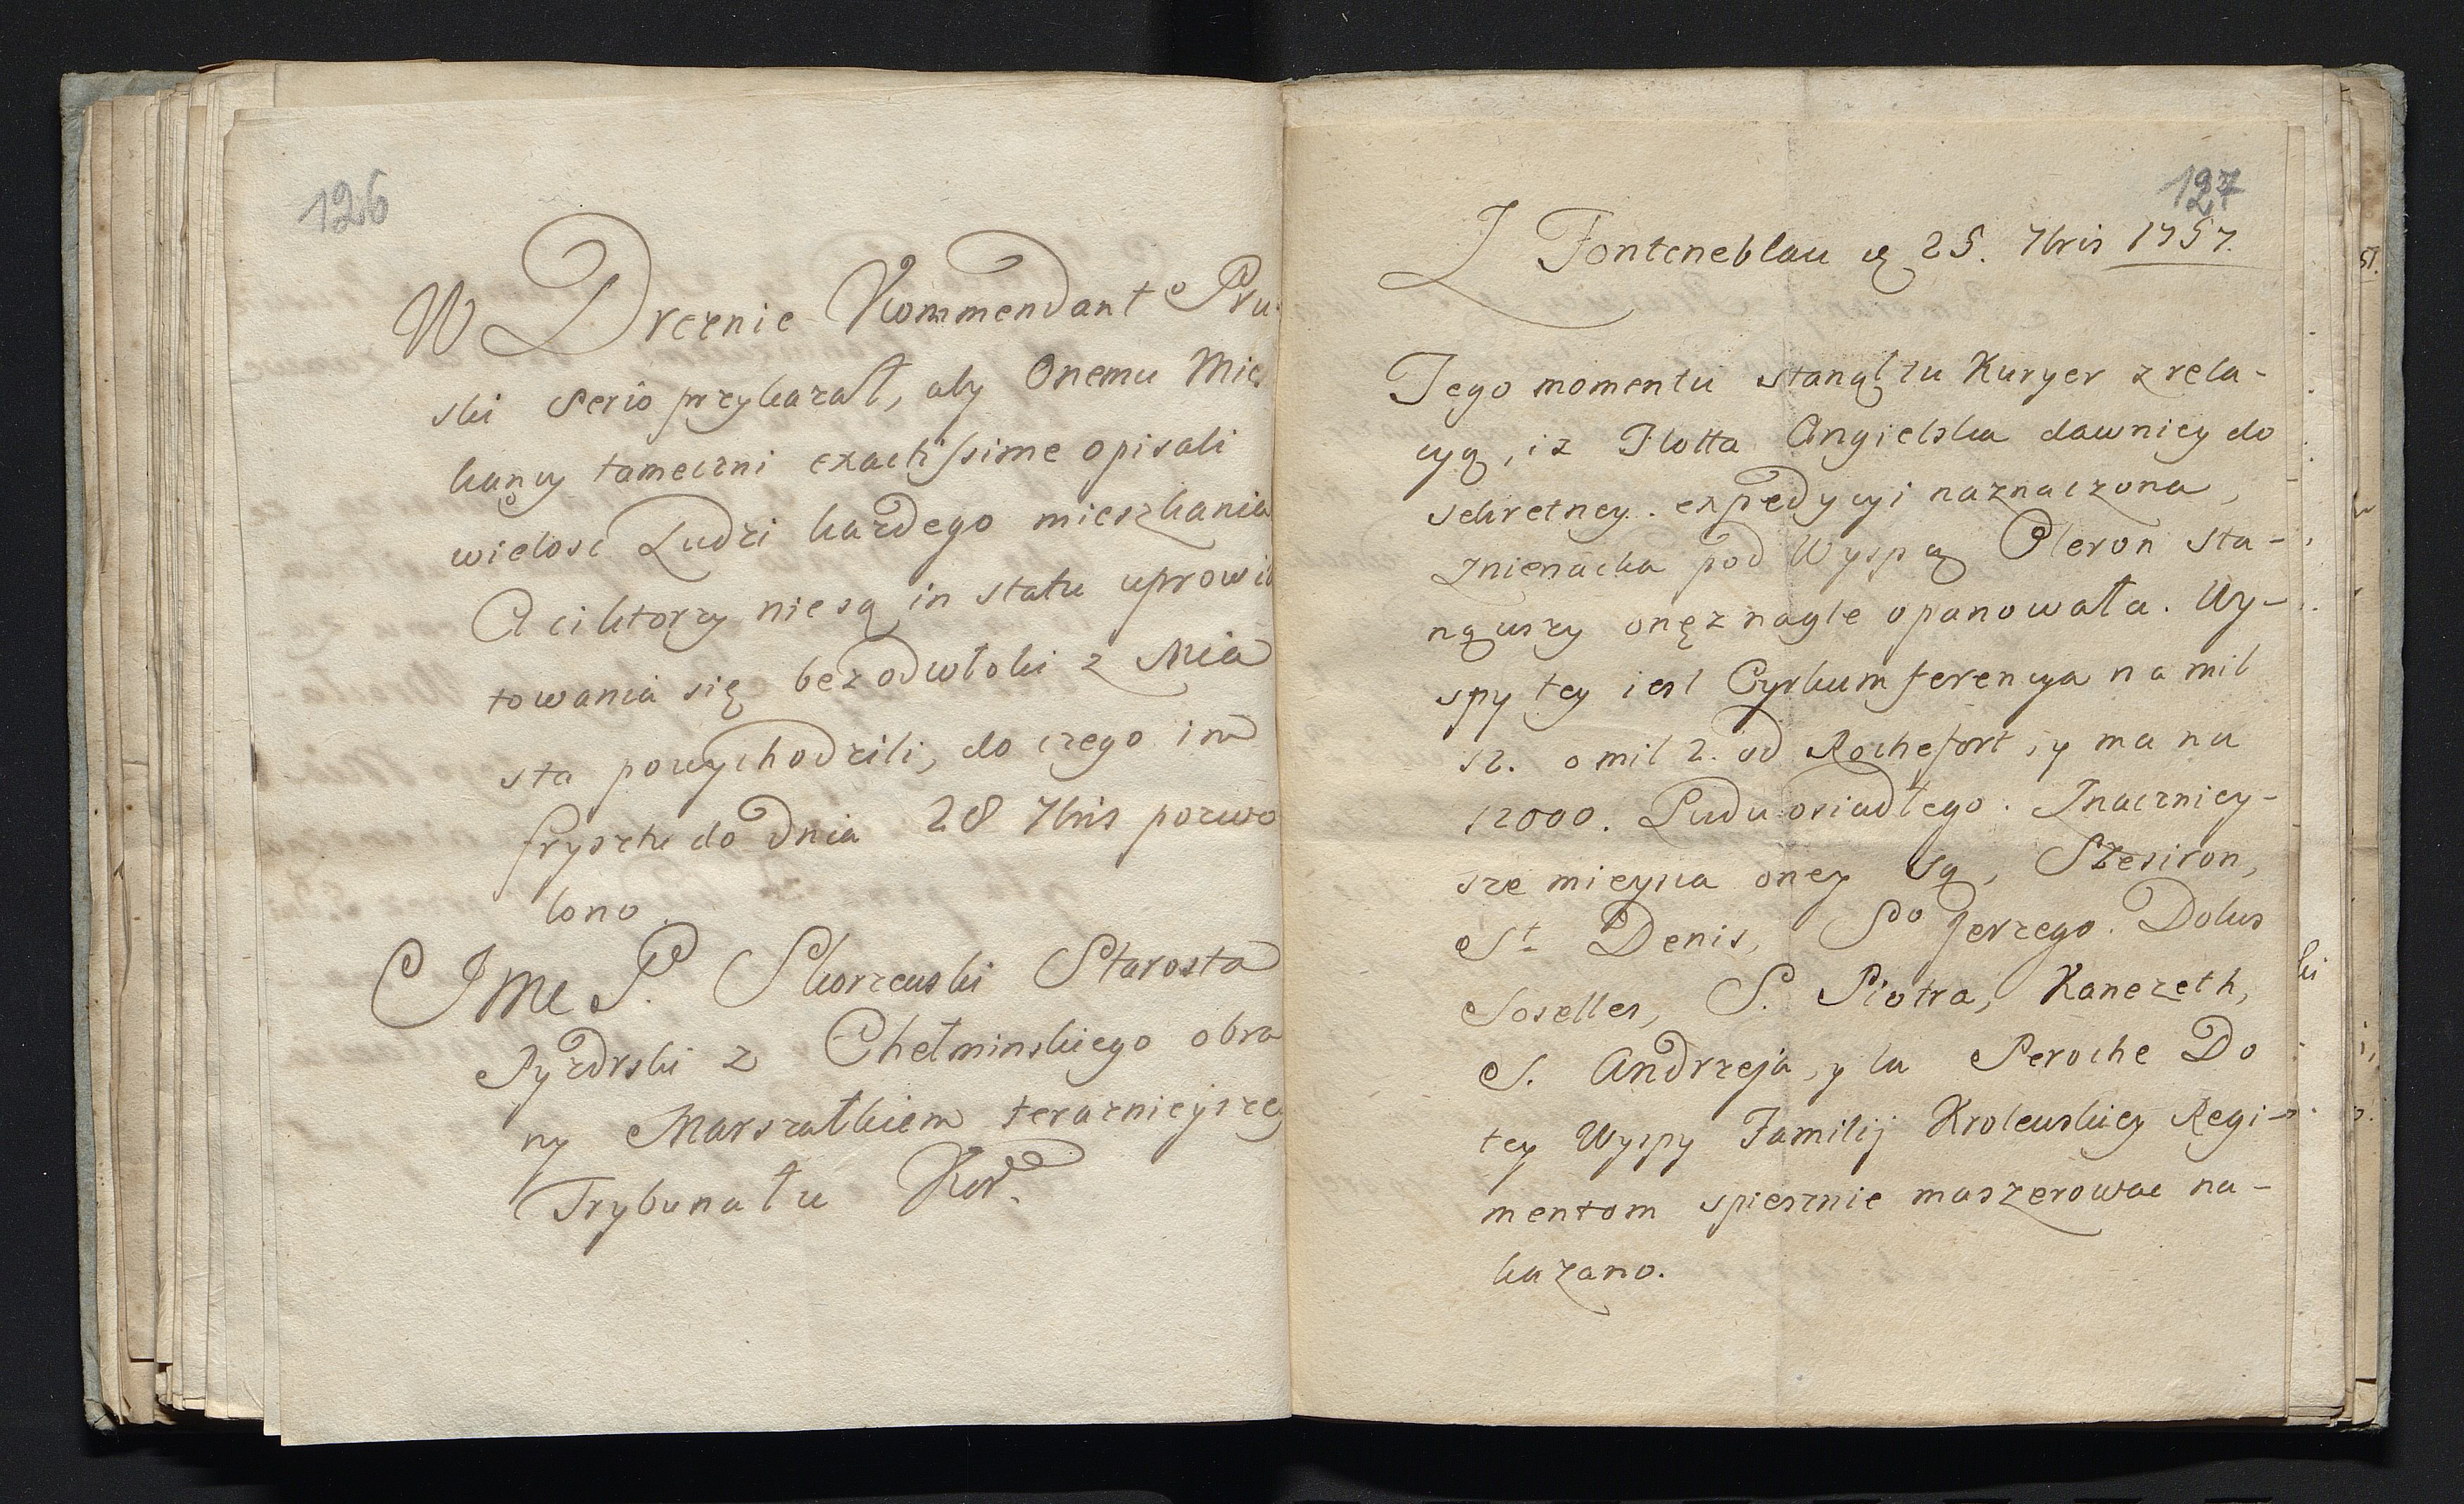 126
W Dreznie Kommendant Pru-
ski serio przykazał, aby Onemu Miesz
kancy tameczni exactissime opisali
wielosc Ludzi kazdego mieszkania
A ci ktorzy nie są in statu uprowid
towania się bez odwłoki z Mia
sta powychodzili, do czego im
frysztu do Dnia 28 7bris pozwo
lono.
JMc P. Skorzewski Starosta
Pyzdrski z Chełminskiego obra
ny Marszałkiem teraznieyszeg
Trybunału Kor.
127
Z Fonteneblau 25. 7bris 1757.
Tego momentu stanął tu Kuryer z rela-
cyą, iz Flotta Angielska dawniey do
sekretney expedycyi naznaczona,
znienacka pod Wyspą Oleron sta-
nąwszy onęz nagle opanowała. Wy-
spy tey iest Cyrkumferencya na mil
12. o mil 2. od Rochefort, y ma na
12000. Ludu osiadłego. Znaczniey-
sze mieysca oney są,
St Denis, Sgo Jerzego. Dolus
Soselles, S. Piotra, Kanezeth,
S. Andrzeja, y la Peroche Do
tey Wyspy Familij Krolewskiey Regi-
mentom spiesznie maszerowac na-
kazano.